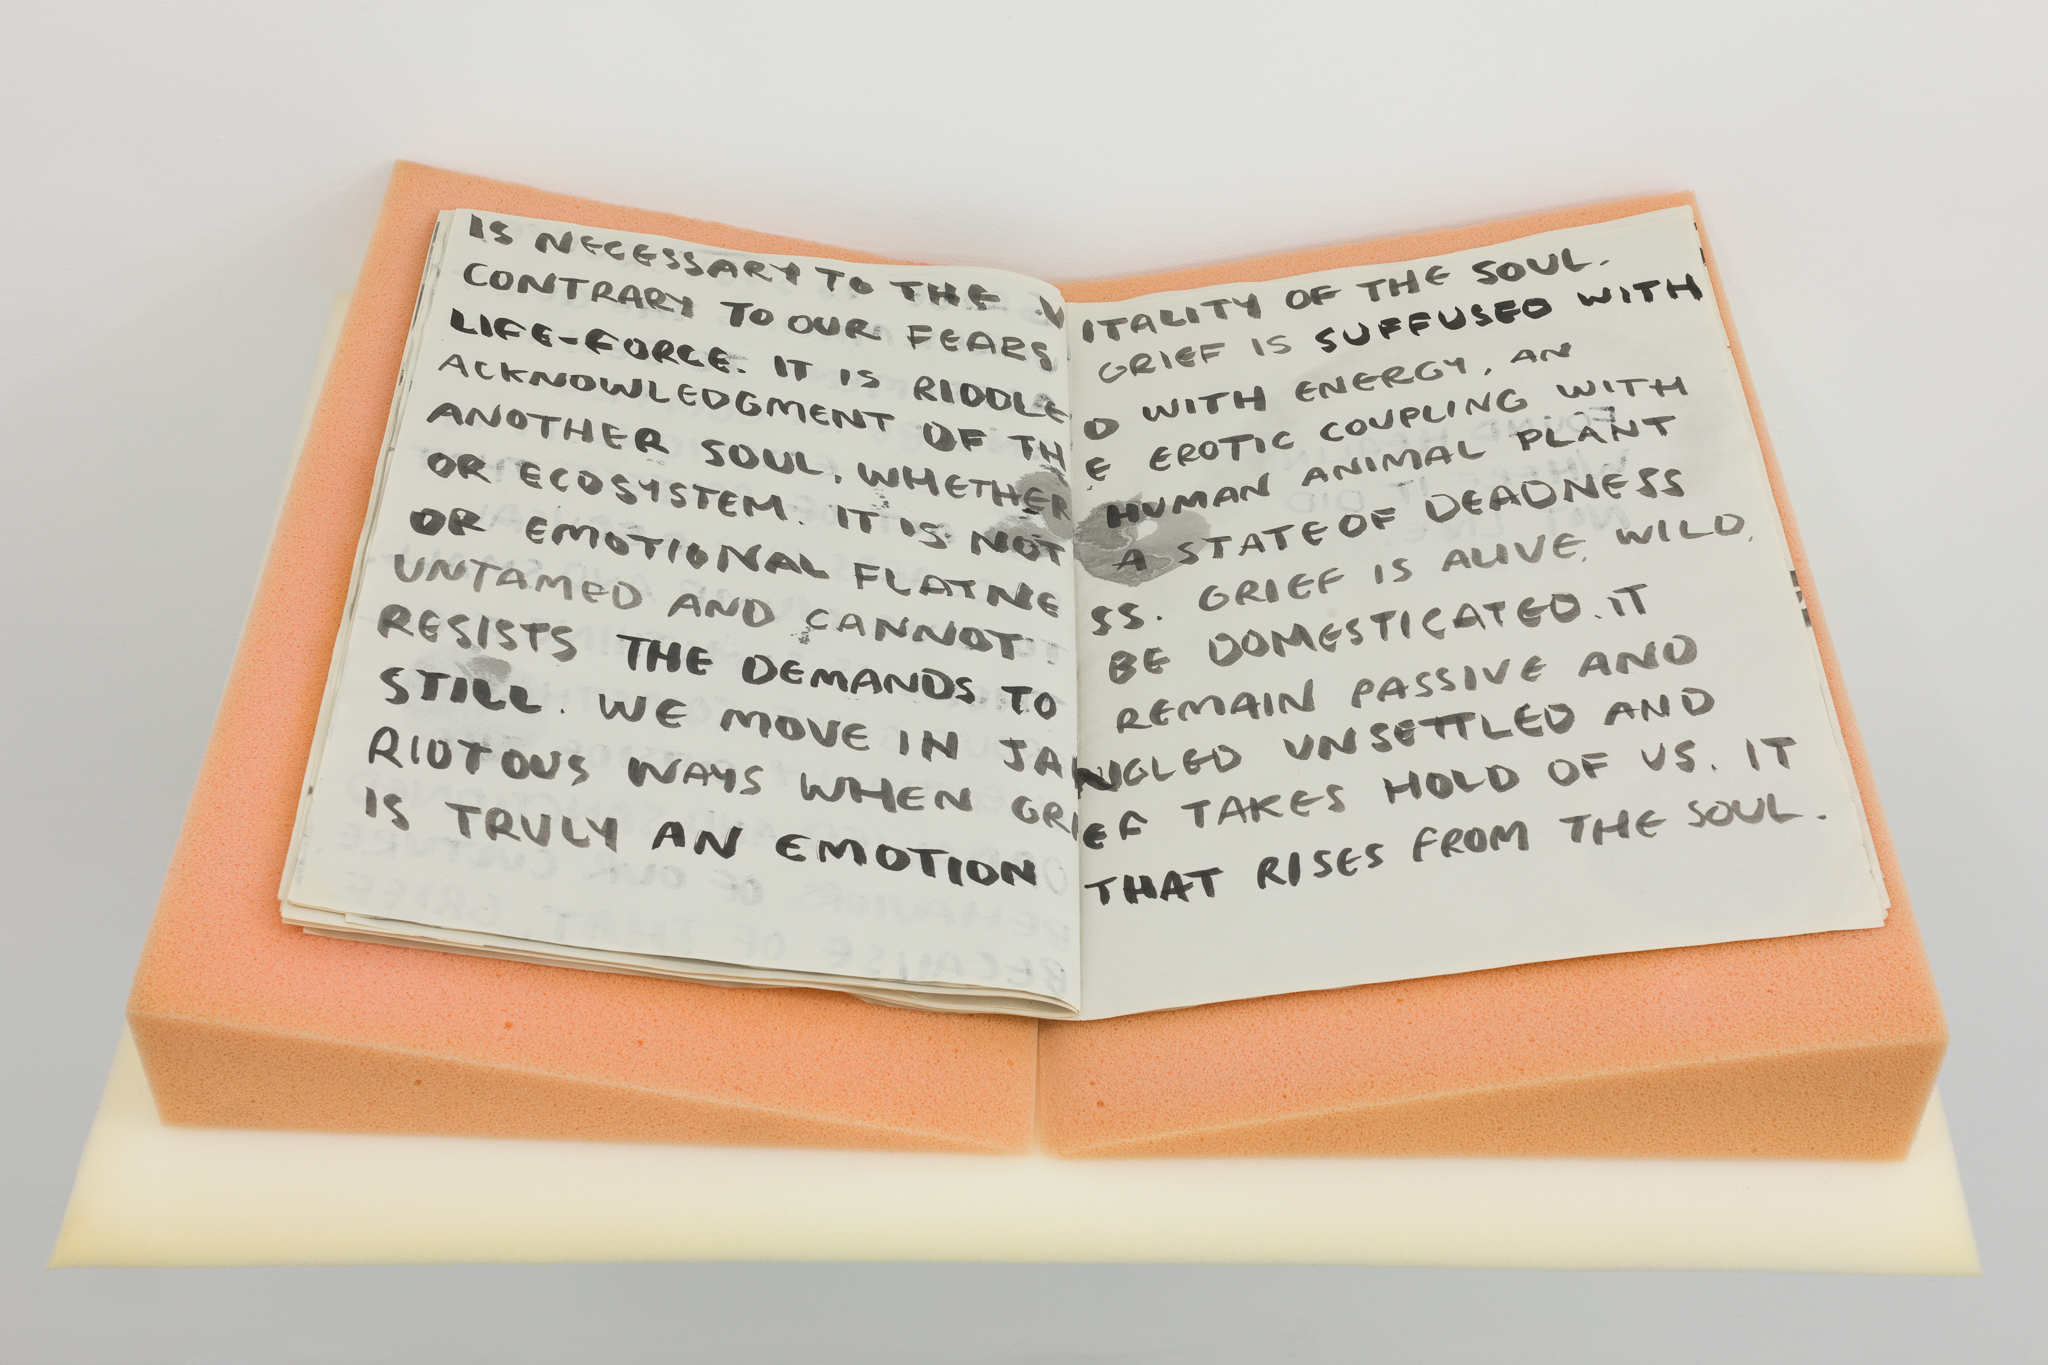 IS NECESSARY TO THE VITALITY OF THE SOUL.
CONTRARY TO OUR FEARS GRIEF IS SUFFUSED WITH
LIFE-FORCE. IT IS RIDDLED WITH ENERGY, AN
ACKNOWLEDGMENT OF THE EROTIC COUPLING WITH
ANOTHER SOUL, WHETHER HUMAN ANIMAL PLANT
OR ECOSYSTEM. IT IS NOT A STATE OF DEADNESS
OR EMOTIONAL FLATNESS. GRIEF IS ALIVE, WILD,
UNTAMED AND CANNOT BE DOMESTICATED. IT
RESISTS THE DEMANDS TO REMAIN PASSIVE AND
STILL. WE MOVE IN JANGLED UNSETTLED AND
RIOTOUS WAYS WHEN GRIEF TAKES HOLD OF US. IT
IS TRULY AN EMOTION THAT RISES FROM THE SOUL.